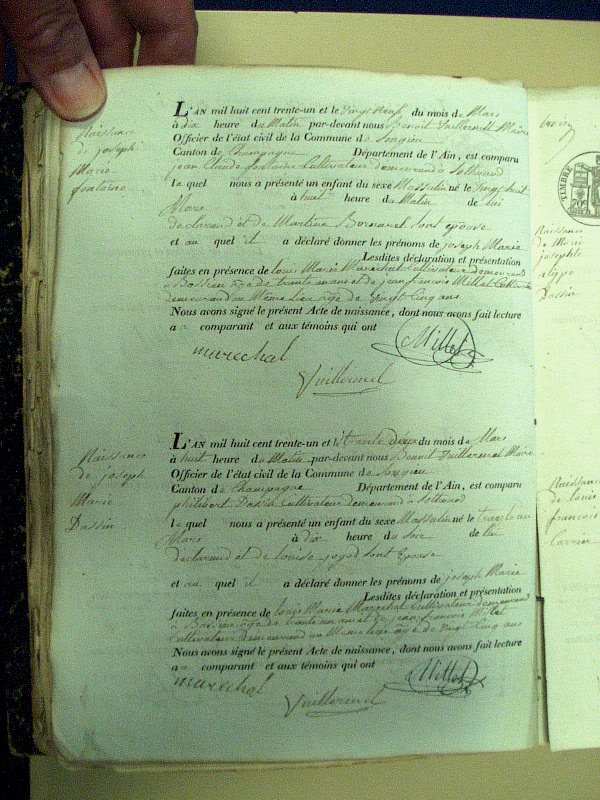 Naissance
de joseph
Marie
fontaine
L'AN mil huit cent trente-un et le vingt neuf du mois de Mars
à dix heure du Matin par-devant nous Benoit Vuillermet Maire
Officier de l'état civil de la Commune de Songieu
Canton de Champagne Département de l'Ain, est comparu
jean Claude fontaine Cultivateur demeurand a Sothonod
le quel nous a présenté un enfant du sexe Masculin né le vingt huit
Mars à huit heure du Matin de lui
declarand et de Martine Bornarel sont epouse
et au quel il a déclaré donner les prénoms de joseph Marie
Lesdites déclaration et présentation
faites en présence de louis Marie Marechal Cultivateur demeurand
a Bassieu âge de trante un ans et de jean françois Millet Cultivateur
demeurand au Même lieu age de vingt Cinq ans
Nous avons signé le présent Acte de naissance, dont nous avons fait lecture
au comparant et aux témoins qui ont
Millet
marechal
Vuillermet
Naissance
de joseph
Marie
Dassin
L'AN mil huit cent trente-un et le trante du mois de Mars
à huit heure du Matin par-devant nous Benoit Vuillermet Maire
Officier de l'état civil de la Commune de Songieu
Canton de Champagne Département de l'Ain, est comparu
philibert Dassin Cultivateur demeurand a Sothonod
le quel nous a présenté un enfant du sexe Masculin né le
Mars à dix heure du Soir de lui
declarand et de louise sont Epouse
et au quel il a déclaré donner les prénoms de joseph Marie
Lesdites déclaration et présentation
faites en présence de louis Marie Marechal Cultivateur demeurand
a Bassieu âge de trante un ans et de jean françois Millet
Cultivateur demeurand au Même lieu âge de vingt Cinq ans
Nous avons signé le présent Acte de naissance, dont nous avons fait lecture
au comparant et aux témoins qui ont
Millet
marechal
Vuillermet
TIMBRE
70
Naissance
de Marie
josephte
Dassin
Naissance
de louis
françois
Carrier